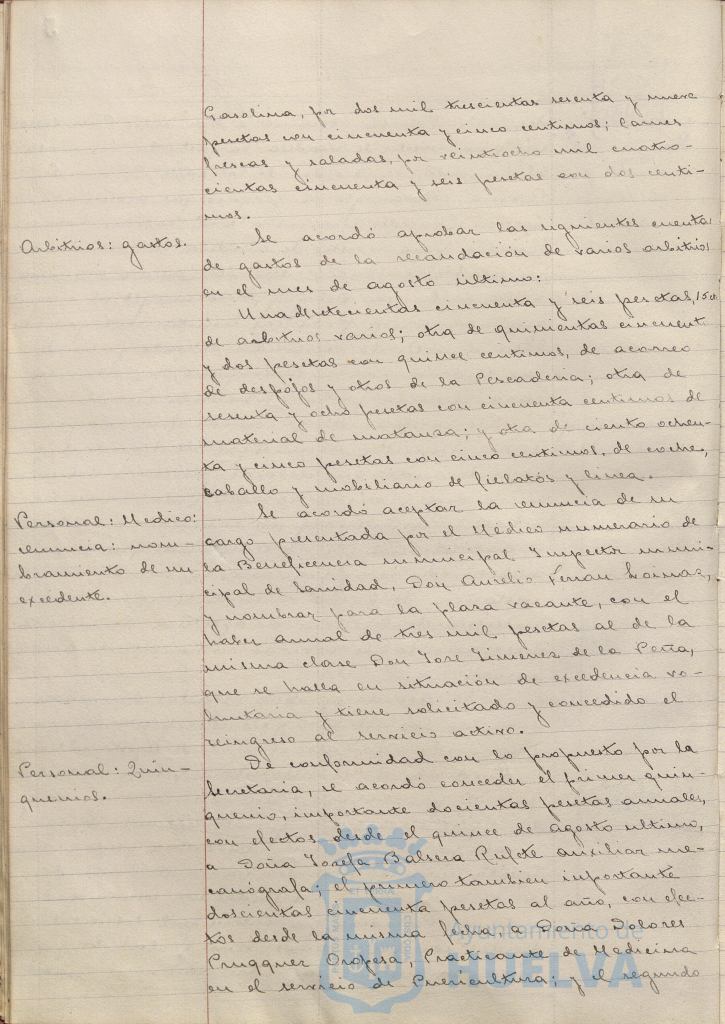 Gasolina, por dos mil trescientas sesenta y nueve
pesetas con cincuenta y cinco centimos; carnes
frescas y saladas, por veintiocho mil cuatro-
cientas cincuenta y seis pesetas con dos centi-
mos.
Arbitrios: gastos.
Se acordó aprobar las siguientes cuentas
de gastos de la recaudación de varios arbitrios
en el mes de agosto último:
Una de setecientas cincuenta y seis pesetas, 15 ct
de arbitrios varios; otra de quinientas cincuenta
y dos pesetas con quince centimos, de acarreo
de despojos y otros de la Pescaderia; otra de
sesenta y ocho pesetas con cincuenta centimos de
material de matanza; y otra de ciento ochen-
ta y cinco pesetas con cinco centimos, de coche,
caballo y mobiliario de fielatos y linea.
Personal: Medico:
renuncia: nom-
bramiento de un
excedente.
Se acordó aceptar la renuncia de su
cargo presentada por el Médico numerario de
la Beneficencia municipal Inspector munici-
cipal de Sanidad, Don Aurelio
y nombrar para la plaza vacante, con el
haber anual de tres mil pesetas al de la
misma clase Don José Jimenez de la Peña,
que se halla en situación de excedencia vo-
luntaria y tiene solicitado y concedido el
reingreso al servicio activo.
Personal: Quin-
quenios.
De conformidad con lo propuesto por la
Secretaria, se acordó conceder el primer quin-
quenio, importante docientas pesetas anuales,
con efectos desde el quince de agosto ultimo,
a Doña Josefa Balsera Rufete auxiliar me-
canógrafa; el primero tambien importante
doscientas cincuenta pesetas al año, con efec-
tos desde la misma fecha, a Doña Dolores
Prugguer Oropesa, Practicante de Medicina
en el servicio de Puericultura; y el segundo
Ayuntamiento de
HUELVA